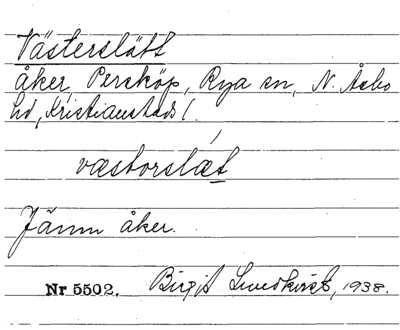 Västerslätt
åker, Persköp, Rya sn, N. Åsbo
hd, Kristianstads l.
væstorslæt
Jämn åker.
Nr 5502. Birgit Lundkvist, 1938.